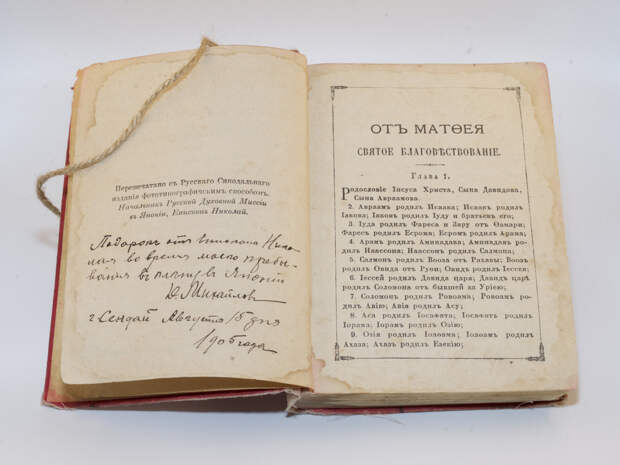 Перепечатано съ Русскаго Синодальнаго
изданія фототипографическимъ способомъ.
Начальникъ Русской Духовной Миссіи
въ Японіи, Епископъ Николай.
Подарокъ отъ Епископа Нико-
лая во время моего пребы-
ванія въ плену въ Японіи
Д. Михайлов
г. Сендай Августа 15 дня
1905 года
ОТЪ МАТѲЕЯ
СВЯТОЕ БЛАГОВѢСТВОВАНІЕ.
Глава 1.
Родословіе Іисуса Христа, Сына Давидова,
Сына Авраамова.
2. Авраамъ родилъ Исаака; Исаакъ родилъ
Іакова; Іаковъ родилъ Іуду и братьевъ его;
3. Іуда родилъ Фареса и Зару отъ Ѳамари;
Фаресъ родилъ Есрома; Есромъ родилъ Арама;
4. Арамъ родилъ Аминадава; Аминадавъ ро-
дилъ Наассона; Наассонъ родилъ Салмона;
5. Салмонъ родилъ Вооза отъ Рахавы; Воозъ
родилъ Овида отъ Руѳи; Овидъ родилъ Іессея;
6. Іессей родилъ Давида царя; Давидъ царь
родилъ Соломона отъ бывшей за Уріею;
7. Соломонъ родилъ Ровоама; Ровоамъ ро-
дилъ Авію; Авія родилъ Асу;
8. Аса родилъ Іосафата; Іосафатъ родилъ
Іорама; Іорамъ родилъ Озію;
9. Озія родилъ Іоаѳама; Іоаѳамъ родилъ
Ахаза; Ахазъ родилъ Езекію;